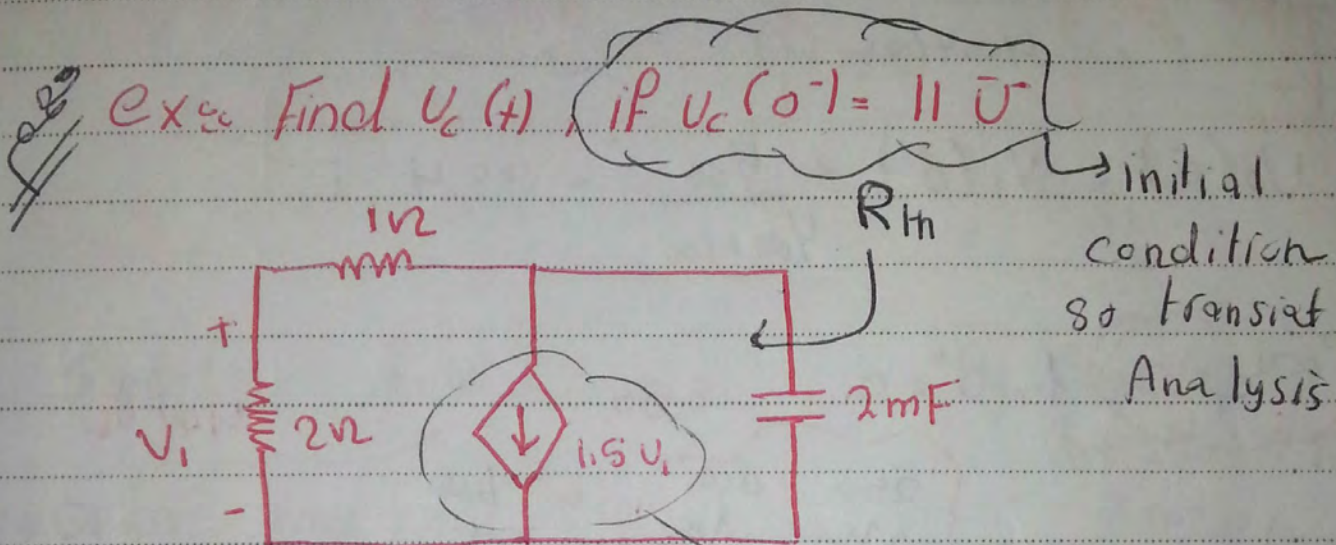 exe: Find Vc(t), if Vc(0⁻) = 11 V
initial
condition
so transiat
Analysis
Rth
1Ω
+
V₁
2Ω
-
1.5 V₁
2mF